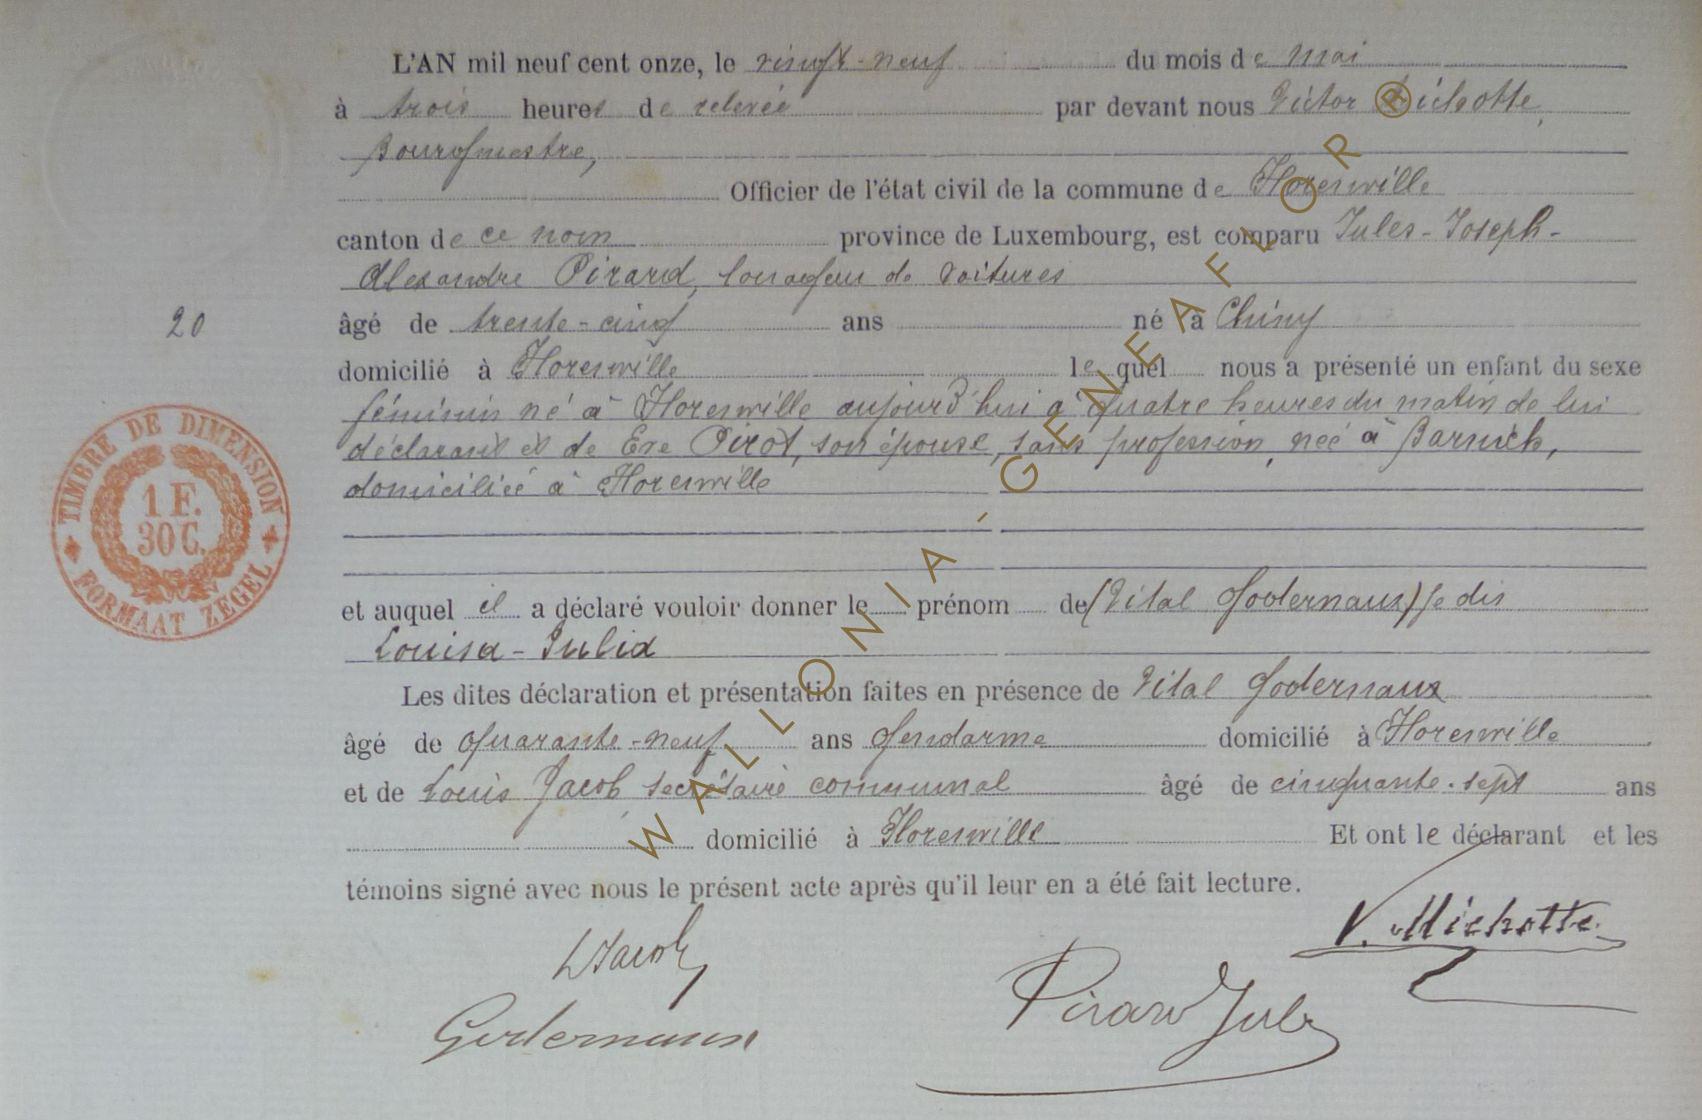 L'AN mil neuf cent onze, le vingt-neuf du mois de mai
à trois heures de relevée par devant nous Victor Michotte,
Bourgmestre,
Officier de l'état civil de la commune de Florenville
canton de ce nom province de Luxembourg, est comparu Jules-Joseph-
Alexandre Pirard, louageur de voitures
20
âgé de trente-cinq ans né à Chiny
domicilié à Florenville lequel nous a présenté un enfant du sexe
féminin né à Florenville aujourd'hui à quatre heures du matin de lui
déclarant et de Eve Pirot, son épouse, sans profession, née à Barnich,
domiciliée à Florenville
TIMBRE DE DIMENSION
1 F.
30 C.
FORMAAT ZEGEL
et auquel il a déclaré vouloir donner le prénom de (Vital Godernaux) je dis
Louisa-Julia
Les dites déclaration et présentation faites en présence de Vital Godernaux
âgé de quarante-neuf ans gendarme domicilié à Florenville
et de Louis Jacob secrétaire communal âgé de cinquante-sept ans
domicilié à Florenville Et ont le déclarant et les
témoins signé avec nous le présent acte après qu'il leur en a été fait lecture.
V. Michotte
L Jacob
Pirard Jules
Godernaux
WALLONIA - GENEAFLOR ®